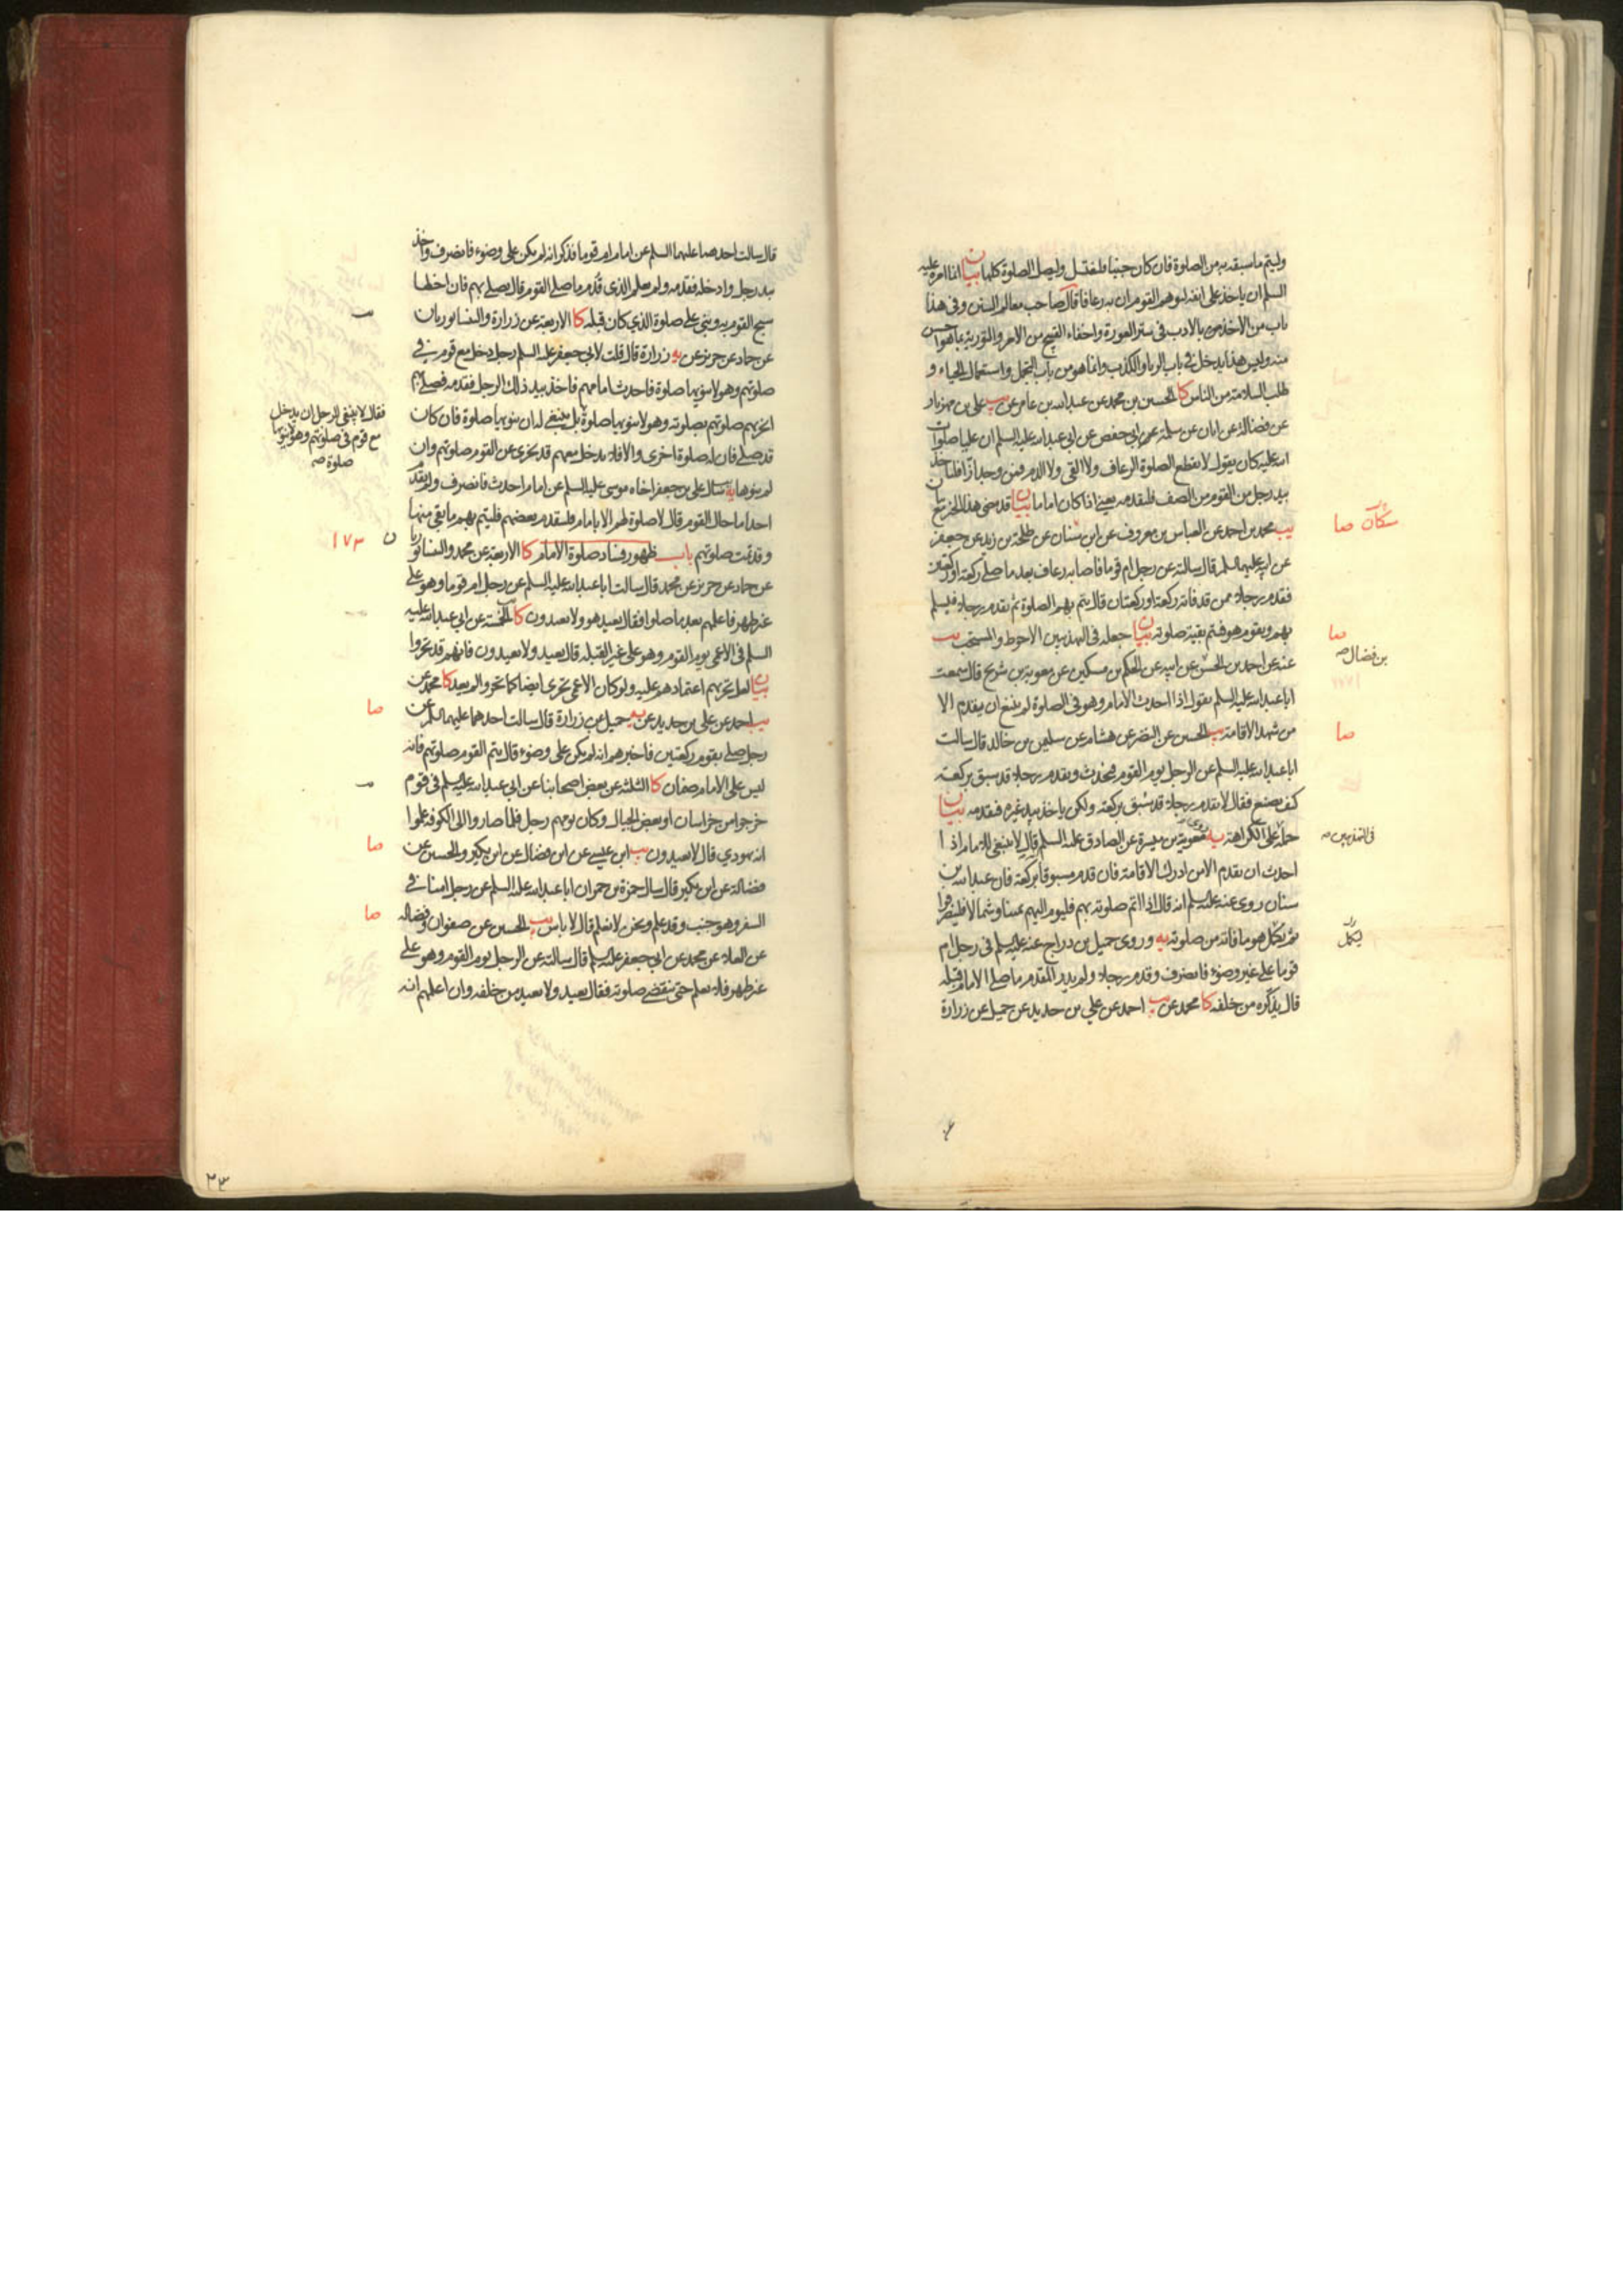 وليتم ما سبقه به من الصلوة فان كان جنبا فليغتسل وليصل الصلوة كلها بيان انما امره عليه
السلم ان ياخذ على انفه ليوهم القوم ان به رعافا قال صاحب معالم السنن وفى هذا
باب من الاخذ بالادب فى ستر العورة واخفاء القبيح من الامر والتورية بما هو احسن
منه وليس هذا يدخل فى باب الريا والكذب وانما هو من باب التجمل واستعمال الحياء و
طلب السلامة من الناس كا الحسين بن محمد عن عبدالله بن عامر عن يب على بن مهزيار
عن فضالة عن ابان عن سلمة عن ابى حفص عن ابى عبدالله عليه السلم ان عليا صلوات
الله عليه كان يقول لا يقطع الصلوة الرعاف ولا القى ولا الدم فمن وجد ازا فلياخذ
بيد رجل من القوم من الصف فليقدمه يعنى اذا كان اماما بيان قد مضى هذا الخبر
يب محمد بن احمد عن العباس بن معروف عن ابن سنان عن طلحة بن زيد عن جعفر
سكان صا
عن ابيه عليهما السلم قال سالته عن رجل ام قوما فاصابه رعاف بعد ما صلى ركعة او ركعتين
فقدم رجلا ممن قد فاته ركعة او ركعتان قال يتم بهم الصلوة ثم يقدم رجلا فيسلم
بهم ويقوم هو فيتم بقية صلوته بيان جعله فى التهذيبين الاحوط والمستحب يب
صا
بن فضال
عنه عن احمد بن الحسن عن ابيه عن الحكم بن مسكين عن معوية بن شريح قال سمعت
ابا عبدالله عليه السلم يقول اذا احدث الامام وهو فى الصلوة لم ينبغ ان يقدم الا
من شهد الاقامة يب الحسين عن النضر عن هشام عن سليمن بن خالد قال سالت
صا
ابا عبدالله عليه السلم عن الرجل يوم القوم فيحدث ويقدم رجلا قد سبق بركعة
كيف يصنع فقال لا يقدم رجلا قد سبق بركعة ولكن ياخذ بيد غيره فيقدمه بيان
حمله على الكراهة يه روى معوية بن ميسرة عن الصادق عليه السلم قال لا ينبغى للامام اذا
فى التهذيبين
احدث ان يقدم الا من ادرك الاقامة فان قدم مسبوقا بركعة فان عبدالله بن
سنان روى عنه عليه السلم انه قال اذا اتم صلوته بهم فليوم اليهم يمينا وشمالا فلينصرفوا
ثم يكمل هو ما فاته من صلوته يه وروى جميل بن دراج عنه عليه السلم فى رجل ام
ليكمل
قوما على غير وضوء فانصرف وقدم رجلا ولم يدر المقدم ما صلى الامام قبله
قال يذكره من خلفه كا محمد عن يب احمد عن علي بن حديد عن جميل عن زرارة
قال سالت احدهما عليهما السلم عن امام ام قوما فذكر انه لم يكن على وضوء فانصرف واخذ
بيد رجل وادخله فقدمه ولم يعلم الذى قدم ما صلى القوم قال يصلى بهم فان اخطا
سبح القوم به وبنى على صلوة الذي كان قبله كا الاربعة عن زرارة والنيسابوريان
عن حماد عن حريز عن يه زرارة قال قلت لابى جعفر عليه السلم رجل دخل مع قوم فى
صلوتهم وهو لا ينويها صلوة فاحدث امامهم فاخذ بيد ذلك الرجل فقدمه فصلى بهم
ايجزيهم صلوتهم بصلوته وهو لا ينويها صلوة بل ينبغى له ان ينويها صلوة فان كان
فقال لا ينبغى للرجل ان يدخل
مع قوم فى صلوتهم وهو لا ينويها
صلوة صح
قد صلى فان له صلوة اخرى والا فلا يدخل معهم قد يجزى عن القوم صلوتهم وان
لم ينوها يه سال على بن جعفر اخاه موسى عليه السلم عن امام احدث فانصرف ولم يقدم
احدا ما حال القوم قال لا صلوة لهم الا بامام فليتقدم بعضهم فليتم بهم ما بقى منها
وقد تمت صلوتهم باب ظهور فساد صلوة الامام كا الاربعة عن محمد والنيسابوريان
١٧٣
عن حماد عن حريز عن محمد قال سالت ابا عبدالله عليه السلم عن رجل ام قوما وهو على
غير طهر فاعلمهم بعد ما صلوا فقال يعيد هو ولا يعيدون كا الخمسة عن ابى عبدالله عليه
السلم فى الاعمى يوم القوم وهو على غير القبلة قال يعيد ولا يعيدون فانهم قد تحروا
بيان لعل تحريهم اعتمادهم عليه ولو كان الاعمى تحرى ايضا كما تحروا لم يعد كا محمد عن
يب احمد عن على بن حديد عن يه جميل عن زرارة قال سالت احدهما عليهما السلم عن
صا
رجل صلى بقوم ركعتين فاخبرهم انه لم يكن على وضوء قال يتم القوم صلوتهم فانه
ليس على الامام ضمان كا الثلثة عن بعض اصحابنا عن ابى عبدالله عليه السلم فى قوم
خرجوا من خراسان او بعض الجبال وكان يومهم رجل فلما صاروا الى الكوفة علموا
انه يهودي قال لا يعيدون يب ابن عيسى عن ابن فضال عن ابن بكير والحسين عن
صا
فضالة عن ابن بكير قال سال حمزة بن حمران ابا عبدالله عليه السلم عن رجل امنا فى
السفر وهو جنب وقد علم ونحن لا نعلم قال لا باس يب الحسين عن صفوان وفضالة
صا
عن العلاء عن محمد عن ابى جعفر عليه السلم قال سالته عن الرجل يوم القوم وهو على
غير طهر فلا يعلم حتى تنقضى صلوته فقال يعيد ولا يعيد من خلفه وان اعلمهم انه
٢٣